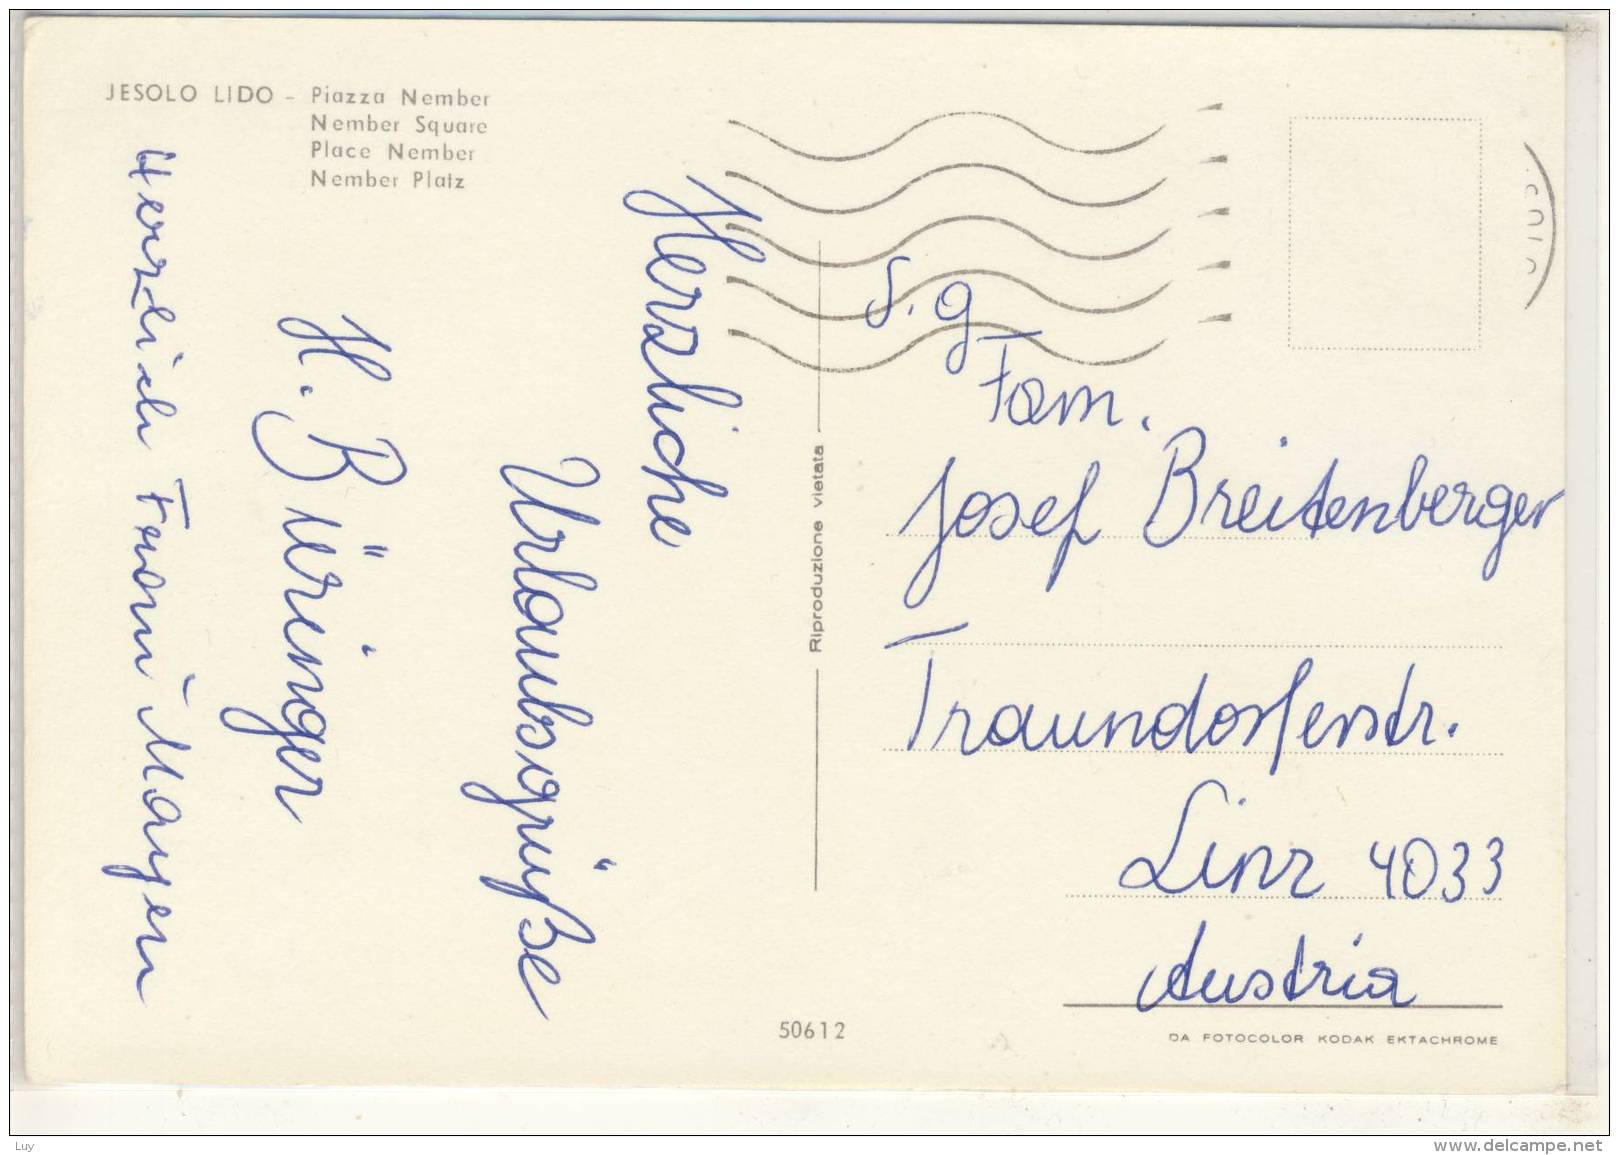 JESOLO LIDO - Piazza Nember
Nember Square
Place Nember
Nember Platz
Herzliche
Urlaubsgrüße
H. Büringer
Herzlich Fanni Mayer
S. g
Fam.
Josef Breitenberger
Traundorferstr.
Linz 4033
Austria
Riproduzione vietata
50612
DA FOTOCOLOR KODAK EKTACHROME
Luy
www.delcampe.net